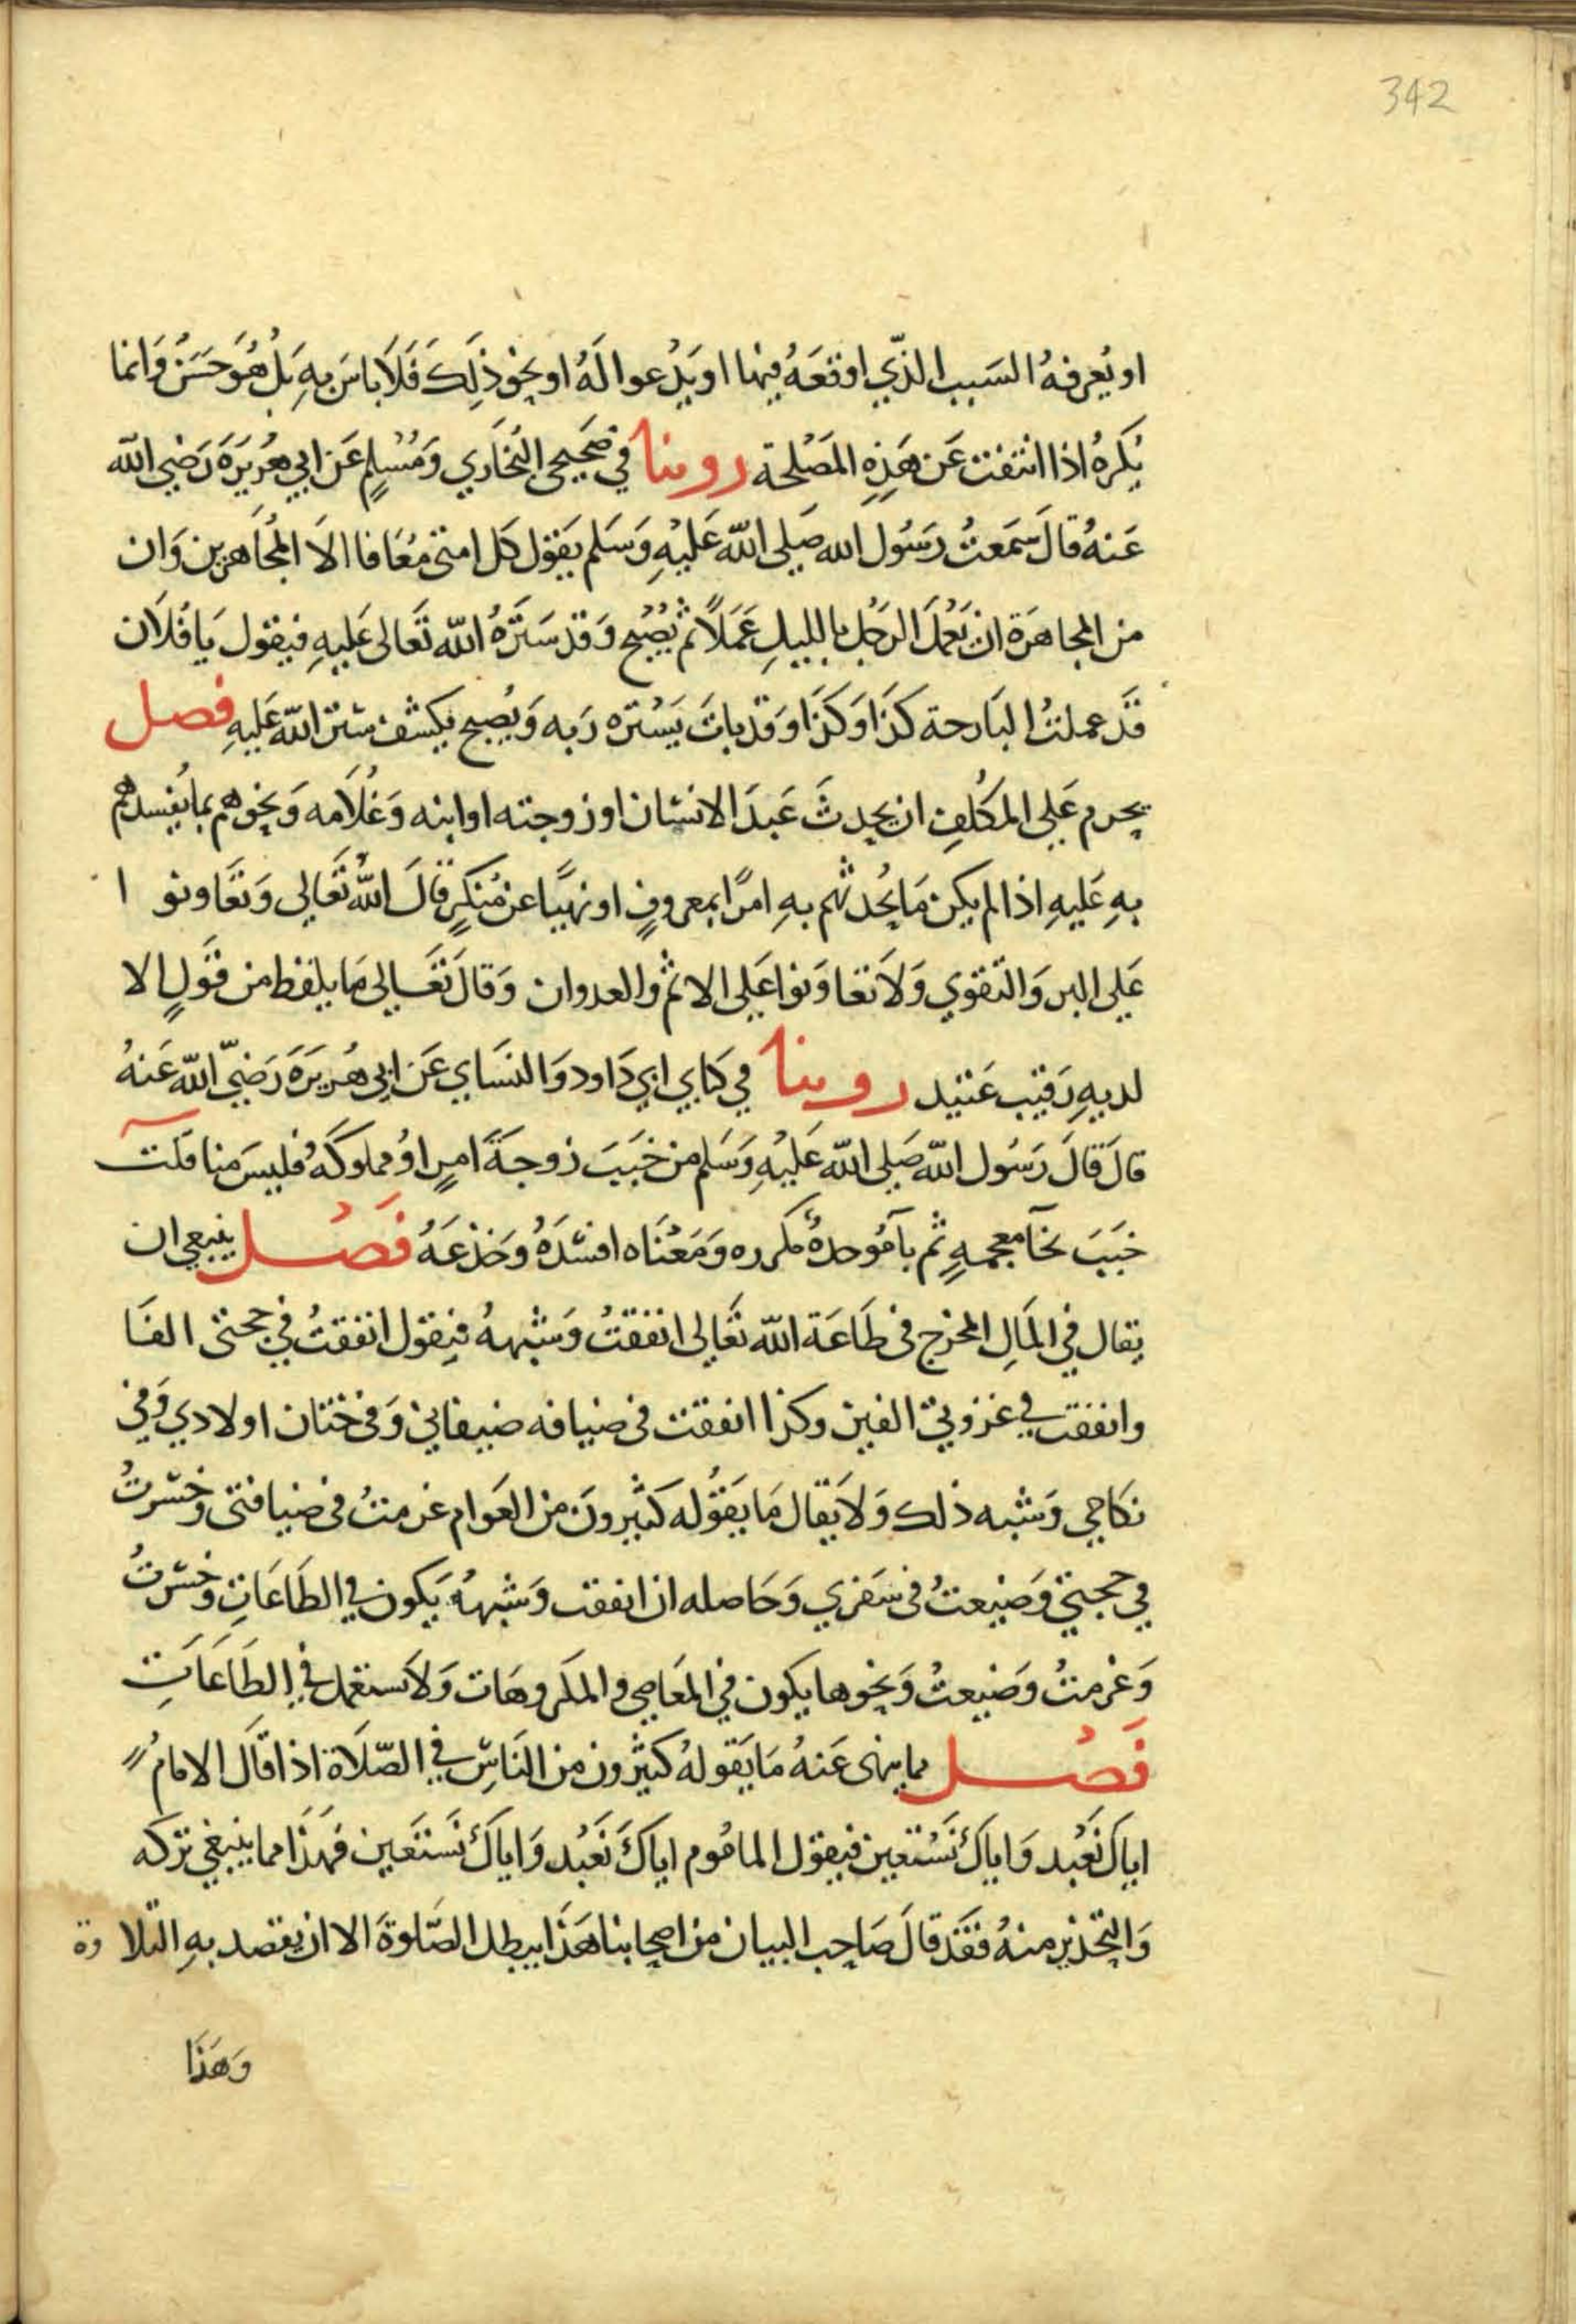 342
او يُعرفهُ السَبب الذّي اوقعَهُ فيها او يَدُعوا لَهُ او نحو ذلِكَ فَلَا باسَ بهِ بَلْ هُوَ حَسَنٌ وَانما
يُكرهُ اذا انتفت عَن هَذِهِ المَصْلحة روينا في صَحيحي البُخَاري وَمُسْلِمٍ عَن ابي هُرَيرَةَ رَضي الله
عَنهُ قالَ سَمَعتُ رَسُول الله صَلى اللّه عَليْهِ وَسَلم يَقول كل امتى مُعَافا الاَ المجَاهرين وَان
من المجاهرَة ان يَعْمَلَ الرَجُل بالليلِ عَمَلاً ثم يُصْبح وَقد سَتَرَهُ اللّه تَعالى عَليهِ فيقول يَا فُلَان
قَد عملتُ البَارحة كذَا وَكذَا وَقد باتَ يَسْتره رَبه وَيُصبح يكشف ستر اللّه عَليهِ فصل
يحرم عَلى المكَلفِ ان يحدثَ عَبدَ الانسَان او زوجته او ابنه وَغُلَامه وَنحوهم بما يُفسدهم
بهِ عَليهِ اذا لم يكن مَا يُحدثهم بهِ امرًا بمعروفٍ او نهيًا عن مُنكرٍ قالَ اللّهُ تَعَالى وَتعَاونو ا
عَلى البر وَالتقوي وَلَا تعاوَنوا عَلى الاثم والعدوان وَقالَ تَعَالى مَا يلفظ من قَولٍ الا
لديهِ رَقيب عَتيد روينا في كتابي ابي دَاود وَالنسَاي عَن ابي هُرَيرَةَ رَضيَ اللّه عَنهُ
قالَ قالَ رَسُول اللّه صَلى اللّه عَليْهِ وَسَلم من خَبَبَ زوجَةَ امرٍ اوُ مملوكَهُ فليسَ منا قلت
خبَبَ بخآ معجمهٍ ثم بآ مُوحدهُ مكرره وَمَعْنَاه افسَدَهُ وَخَدعَهُ فَصُل ينبغي ان
يقال في المَالِ المخرج فى طَاعَة اللّه تعَالى انفقتُ وَشبههُ فيقول انفقتُ في حجتى الفَا
وانفقت في غزوتي الفين وكذا انفقت فى ضيافه ضيفاني وَفى ختان اولادي وَفي
نكاحي وَشبه ذلك وَلا يَقال مَا يَقوُله كثيرونَ من العَوام غرمتُ فى ضيافتى وخسرتُ
في حجتي وَضيعتُ فى سَفري وَحَاصله ان انفقت وَشبههُ يكون في الطَاعَاتِ وخسرتُ
وَغرمتُ وَضيعتُ وَنحوها يكون في المَعَاصي والمكروهَات وَلَا تستعمل في الطَاعَاتِ
فَصُل مما ينهى عَنهُ مَا يَقولهُ كثيرون من النَاسِ في الصّلَاة اذا قَالَ الامامُ
اياكَ نَعْبد وَاياكَ نَسْتعين فيقول المامُوم اياكَ نَعْبُد وَاياكَ نَستَعَين فهَذَا مما ينبغي تركه
وَالتّحذير منهُ فَقَد قالَ صَاحب البيان من اصحابنا هَذا يبطل الصَّلوةَ الا ان يقصد بهِ التلا وة
وَهَذَا